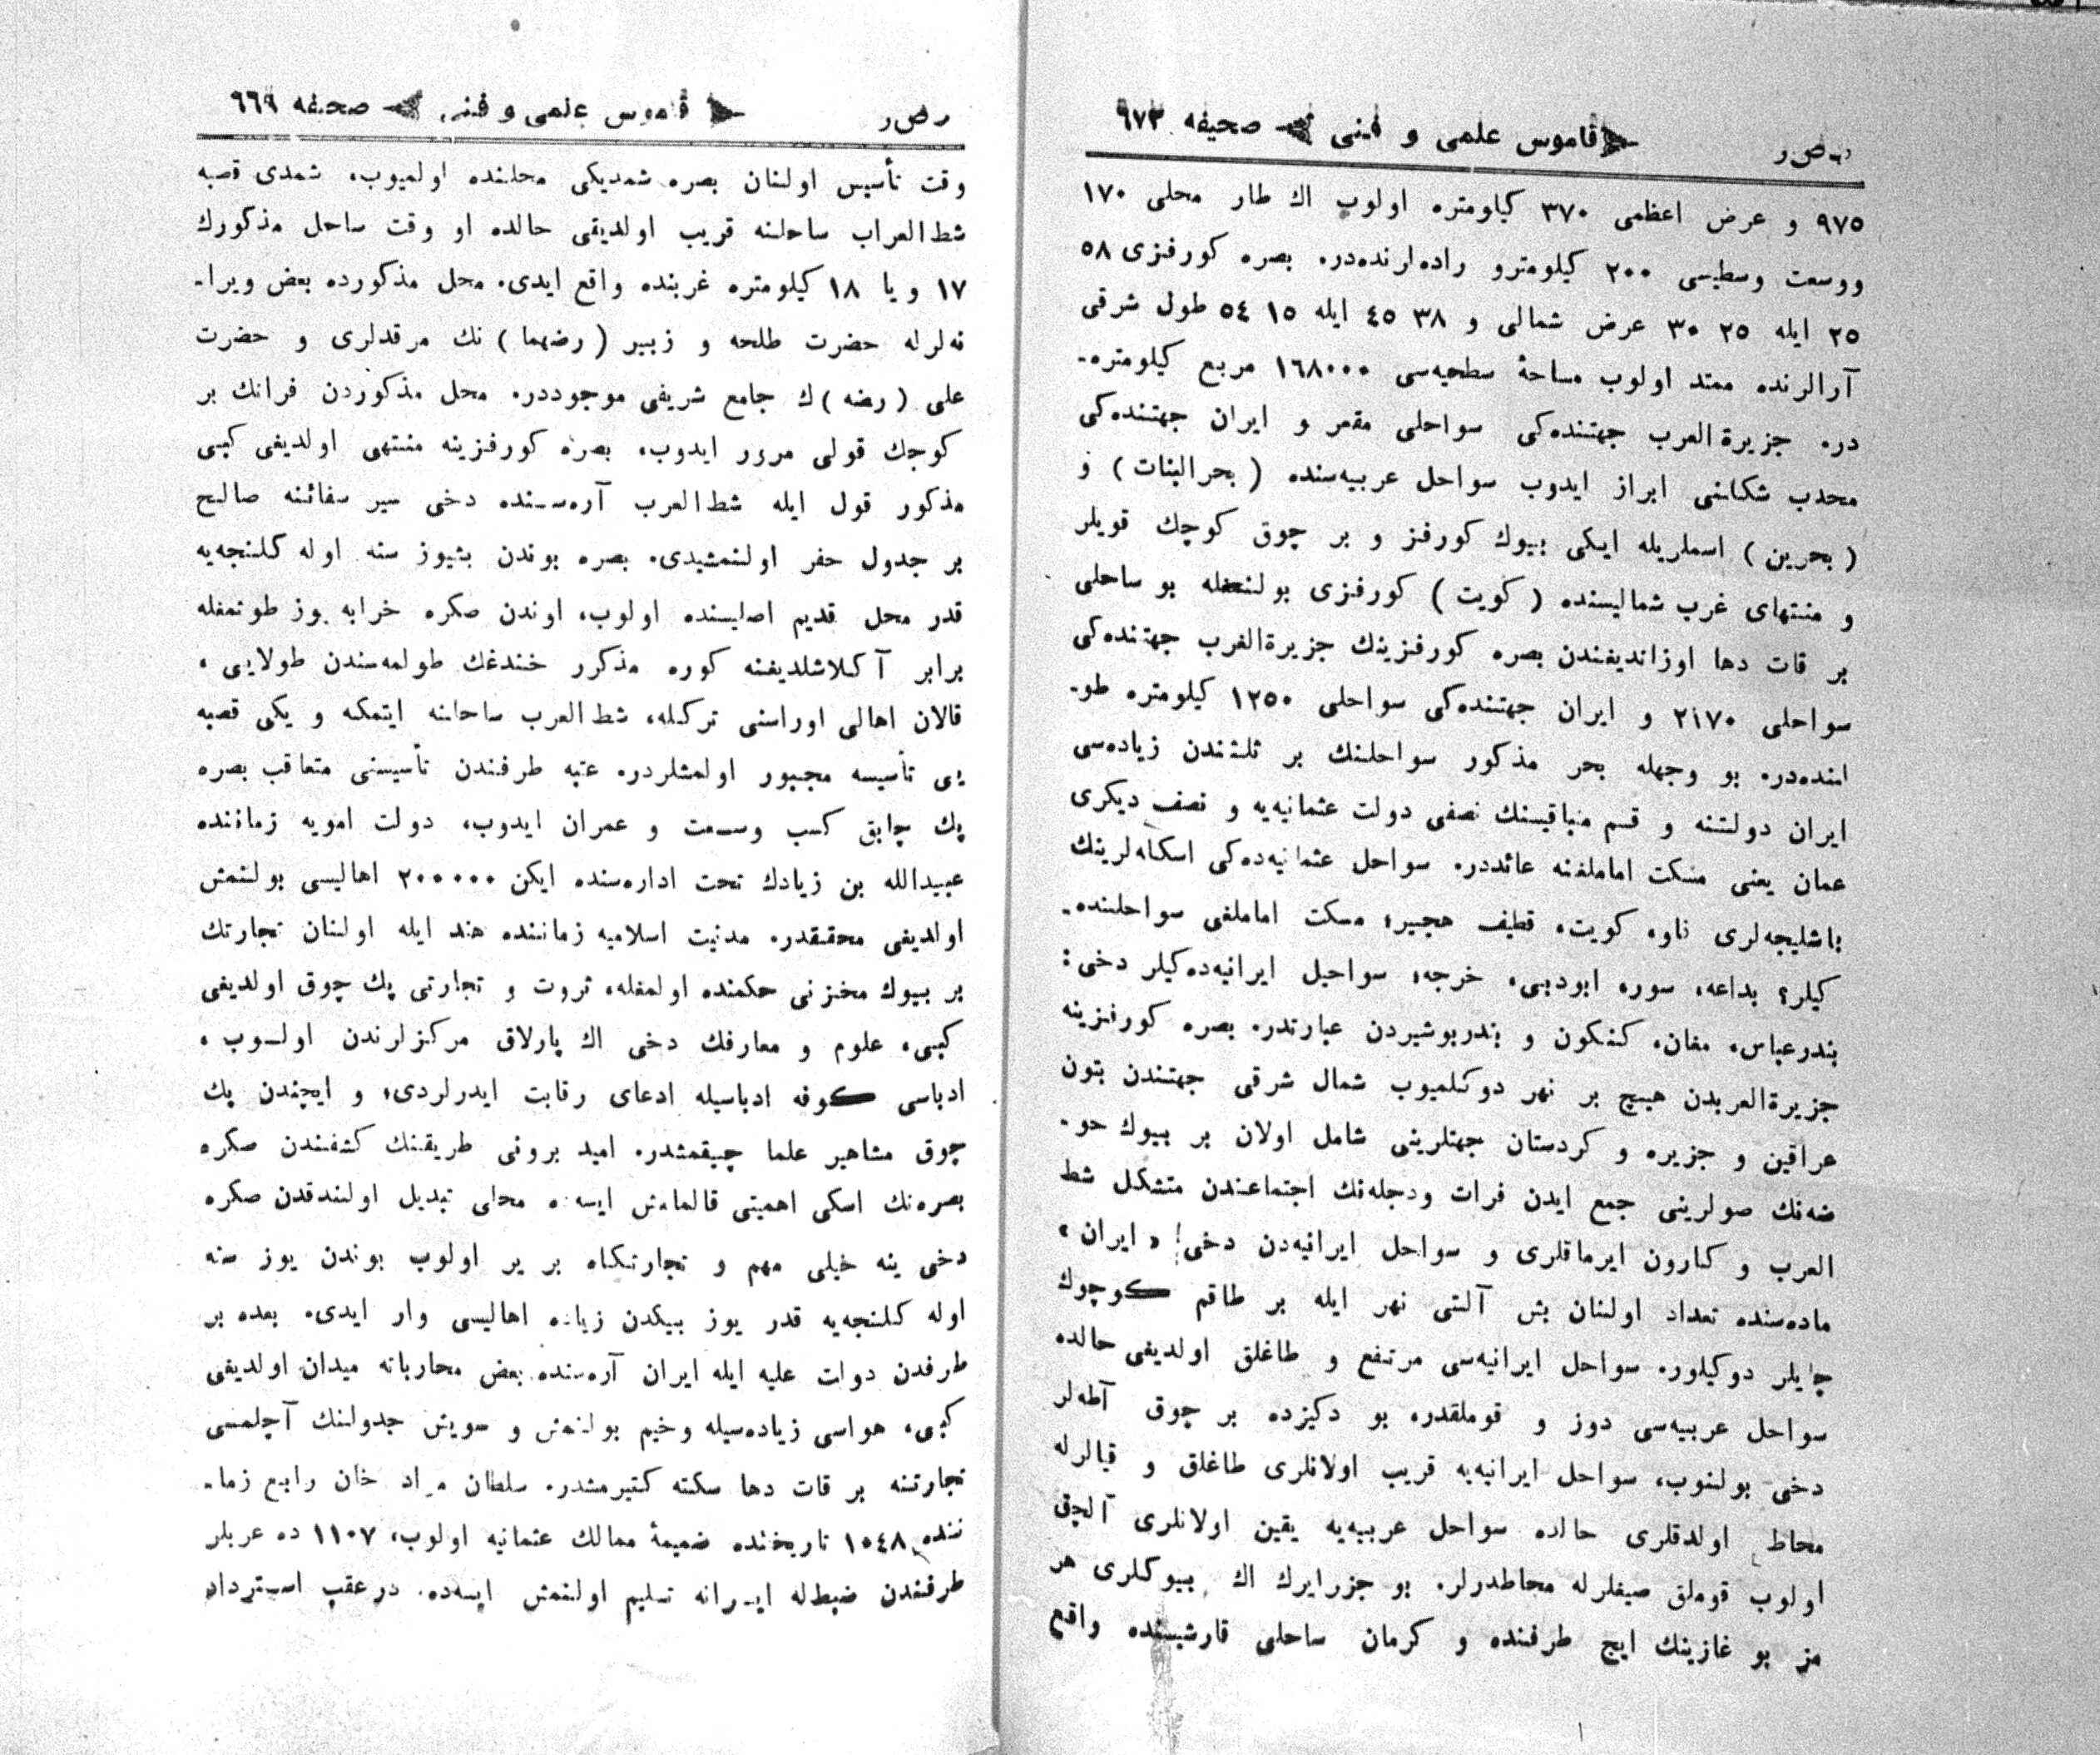 بصر قاموس علمی و فنی صحیفه ٩٧٣
٩٧٥ و عرض اعظمی ٣٧٠ کیلومتره اولوب اك طار محلی ١٧٠
ووسعت وسطیسی ٢٠٠ کیلومترو راده‌لرنده‌در. بصره کورفزی ٥٨
٢٥ ایله ٢٥ ٣٠ عرض شمالی و ٣٨ ٤٥ ایله ١٥ ٥٤ طول شرقی
آرالرنده ممتد اولوب مساحۀ سطحیه‌سی ١٦٨٠٠٠ مربع کیلومتره-
در. جزیرة‌العرب جهتنده‌کی سواحلی مقعر و ایران جهتنده‌کی
محدب شکلنی ابراز ایدوب سواحل عربیه‌سنده (بحرالبنات) و
(بحرین) اسملریله ایکی بیوك کورفز و بر چوق کوچك قویلر
و منتهای غرب شمالیسنده (کویت) کورفزی بولنمغله بو ساحلی
بر قات دها اوزاندیغندن بصره کورفزینك جزیرة‌العرب جهتنده‌کی
سواحلی ٢١٧٠ و ایران جهتنده‌کی سواحلی ١٢٥٠ کیلومتره طو-
لنده‌در. بو وجهله بحر مذکور سواحلنك بر ثلثندن زیاده‌سی
ایران دولتنه و قسم متباقیسنك نصفی دولت عثمانیه‌یه و نصف دیکری
عمان یعنی مسکت اماملغنه عائددر. سواحل عثمانیه‌ده‌کی اسکله‌لرینك
باشلیجه‌لری ناو، کویت، قطیف هجیر؛ مسکت اماملغی سواحلنده-
کیلر؟ بداعه، سور، ابودبی، خرجه؛ سواحل ایرانیه‌ده‌کیلر دخی:
بندرعباس، مغان، کنکون و بندربوشیردن عبارتدر. بصره کورفزینه
جزیرة‌العربدن هیچ بر نهر دوکلمیوب شمال شرقی جهتندن بتون
عراقین و جزیره و کردستان جهتلرینی شامل اولان بر بیوك حو-
ضه‌نك صولرینی جمع ایدن فرات ودجله‌نك اجتماعندن متشکل شط
العرب و کارون ایرماقلری و سواحل ایرانیه‌دن دخی «ایران»
ماده‌سنده تعداد اولنان بش آلتی نهر ایله بر طاقم کوچوك
چایلر دوکیلور. سواحل ایرانیه‌سی مرتفع و طاغلق اولدیغی حالده
سواحل عربیه‌سی دوز و قوملقدر. بو دکیزده بر چوق آطه‌لر
دخی بولنوب، سواحل ایرانیه‌یه قریب اولانلری طاغلق و قیالرله
محاط اولدقلری حالده سواحل عربیه‌یه یقین اولانلری آلچق
اولوب قوملق صیغلرله محاطدرلر. بو جزرایرك اك بیوکلری هر
مز بو غازینك ایچ طرفنده و کرمان ساحلی قارشیسنده واقع
بصر قاموس علمی و فنی صحیفه ٦٦٩
وقت تأسیس اولنان بصره شمدیکی محلنده اولمیوب، شمدی قصبه
شط‌العراب ساحلنه قریب اولدیقی حالده او وقت ساحل مذکورك
١٧ و یا ١٨ کیلومتره غربنده واقع ایدی. محل مذکورده بعض ویرا-
نه‌لرله حضرت طلحه و زبیر (رضهما) نك مرقدلری و حضرت
علی (رضه)ك جامع شریفی موجوددر. محل مذکوردن فراتك بر
کوچك قولی مرور ایدوب، بصره کورفزینه منتهی اولدیغی کبی
مذکور قول ایله شط‌العرب آره‌سنده دخی سیر سفائنه صالح
بر جدول حفر اولنمشیدی. بصره بوندن بشیوز سنه اوله کلنجه‌یه
قدر محل قدیم اصلیسنده اولوب، اوندن صکره خرابه یوز طوتمغله
برابر آکلاشلدیغنه کوره مذکور خندغك طولمه‌سندن طولایی،
قالان اهالی اوراسنی ترکله، شط‌العرب ساحلنه ایتمکه و یکی قصبه
یی تأسیسه مجبور اولمشلردر. عتبه طرفندن تأسیسنی متعاقب بصره
پك چابق کسب وسعت و عمران ایدوب، دولت امویه زماننده
عبیدالله بن زیادك تحت اداره‌سنده ایکن ٢٠٠٠٠٠ اهالیسی بولنمش
اولدیغی محققدر. مدنیت اسلامیه زماننده هند ایله اولنان تجارتك
بر بیوك مخزنی حکمنده اولمغله، ثروت و تجارتی پك چوق اولدیغی
کبی، علوم و معارفك دخی اك پارلاق مرکزلرندن اولوب،
ادباسی کوفه ادباسیله ادعای رقابت ایدرلردی؛ و ایچندن پك
چوق مشاهیر علما چیقمشدر. امید برونی طریقنك کشفندن صکره
بصره‌نك اسکی اهمیتی قالمامش ایسه‌ده محلی تبدیل اولندقدن صکره
دخی ینه خیلی مهم و تجارتکاه بر یر اولوب بوندن یوز سنه
اوله کلنجه‌یه قدر یوز بیکدن زیاده اهالیسی وار ایدی. بعده بر
طرفدن دولت علیه ایله ایران آره‌سنده بعض محارباته میدان اولدیغی
کبی، هواسی زیاده‌سیله وخیم بولنمش و سویش جدولنك آچلمسی
تجارتنه بر قات دها سکته کتیرمشدر. سلطان مراد خان رابع زما-
ننده ١٥٤٨ تاریخنده ضمیمۀ ممالك عثمانیه اولوب، ١١٠٧ ده عربلر
طرفندن ضبطله ایرانه تسلیم اولنمش ایسه‌ده. درعقب استرداد